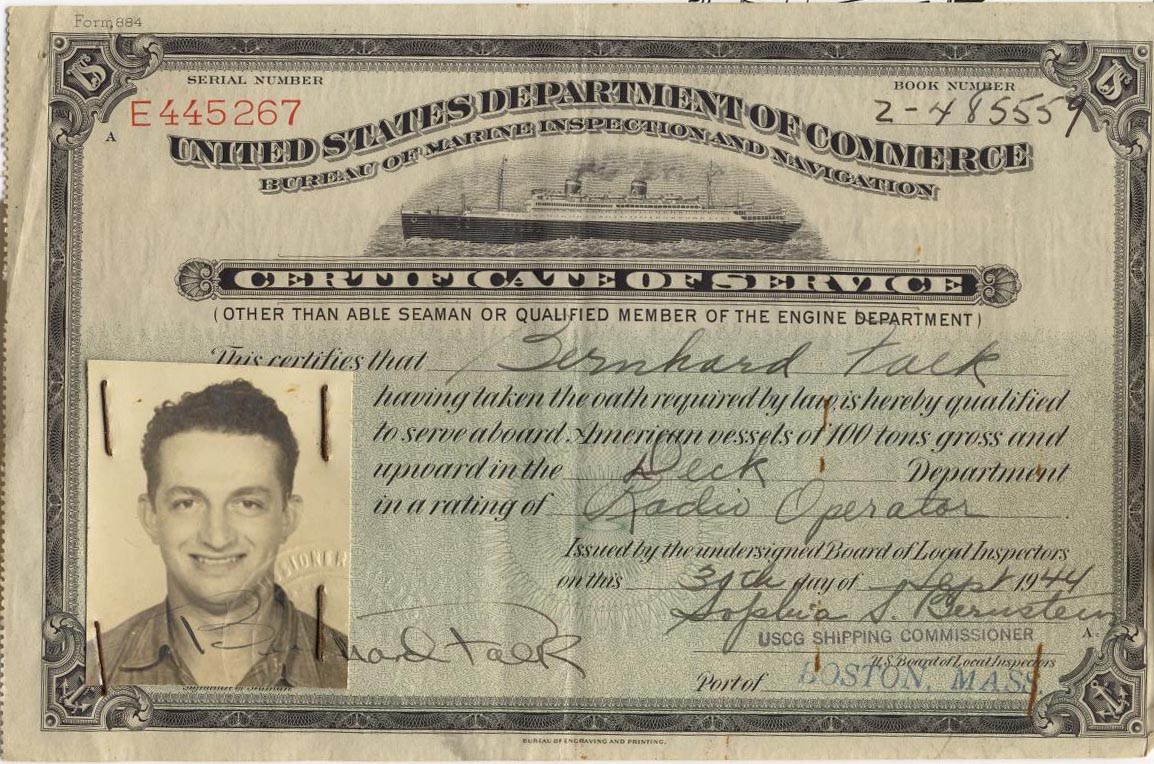 Form 884
SERIAL NUMBER
E445267
BOOK NUMBER
Z-485559
A
UNITED STATES DEPARTMENT OF COMMERCE
BUREAU OF MARINE INSPECTION AND NAVIGATION
CERTIFICATE OF SERVICE
(OTHER THAN ABLE SEAMAN OR QUALIFIED MEMBER OF THE ENGINE DEPARTMENT)
This certifies that Bernhard Falk
having taken the oath required by law is hereby qualified
to serve aboard American vessels of 100 tons gross and
upward in the Deck Department
in a rating of Radio Operator
Issued by the undersigned Board of Local Inspectors
on this 30th day of Sept 1944
Sophia S. Bernstein
USCG SHIPPING COMMISSIONER
A.
U.S. Board of Local Inspectors
Port of BOSTON, MASS.
Bernhard Falk
Signature of Seaman
BUREAU OF ENGRAVING AND PRINTING.